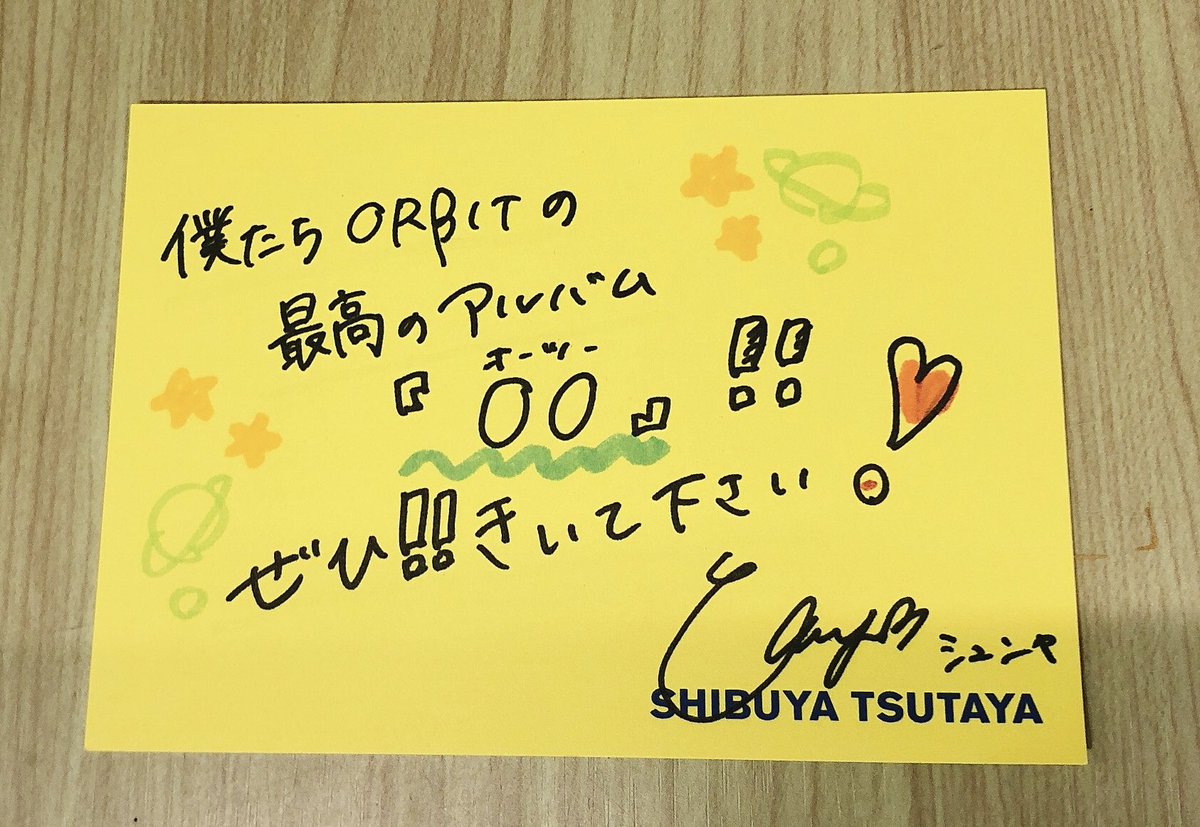 僕たちORBITの
最高のアルバム
オーツー
『00』!!
ぜひ!!きいて下さい!
シュンヤ
SHIBUYA TSUTAYA